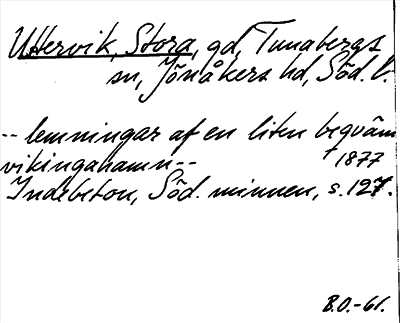 Uttervik, Stora, gd, Tunabergs
sn, Jönåkers hd, Söd. l.
-- lemningar af en liten beqväm
vikingahamn--
1877
Indebetou, Söd. minnen, s. 127.
B.O.-61.